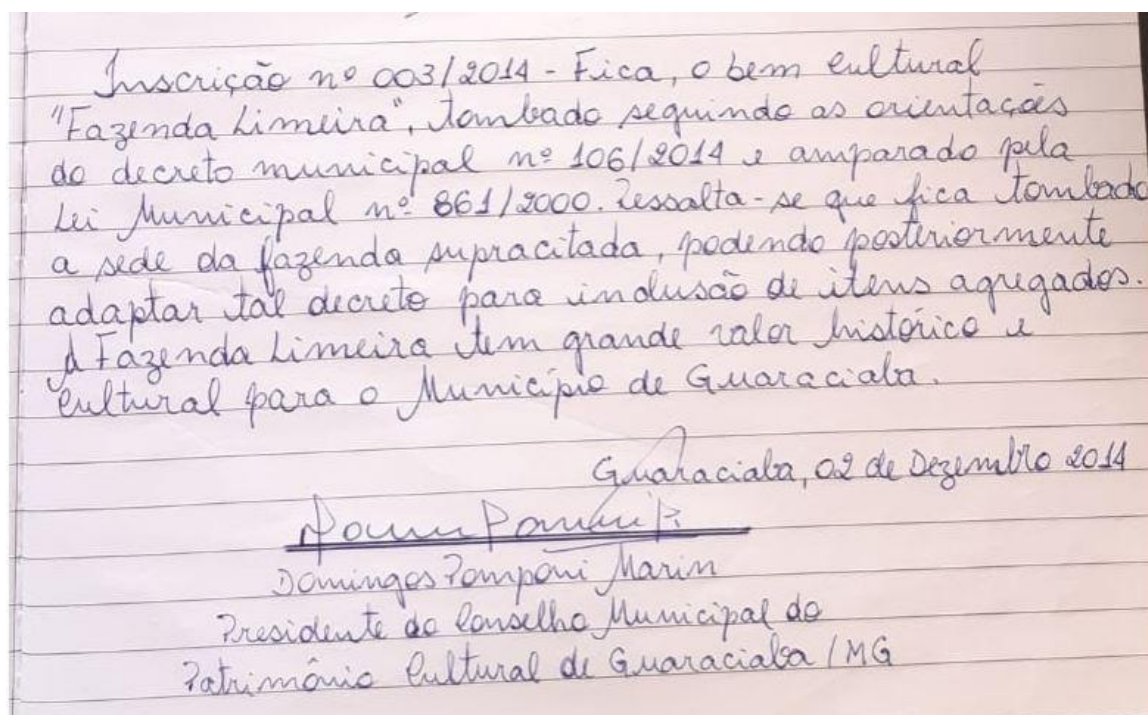 Inscrição nº 003/2014 - Fica, o bem cultural
"Fazenda Limeira", tombado seguindo as orientações
do decreto municipal nº 106/2014 e amparado pela
Lei Municipal nº 861/2000. Ressalta-se que fica tombado
a sede da fazenda supracitada, podendo posteriormente
adaptar tal decreto para inclusão de itens agregados.
A Fazenda Limeira tem grande valor histórico e
Cultural para o Município de Guaraciaba.
Guaraciaba, 02 de Dezembro 2014
Domingos Pomponi Marin
Presidente do Conselho Municipal do
Patrimônio Cultural de Guaraciaba / MG